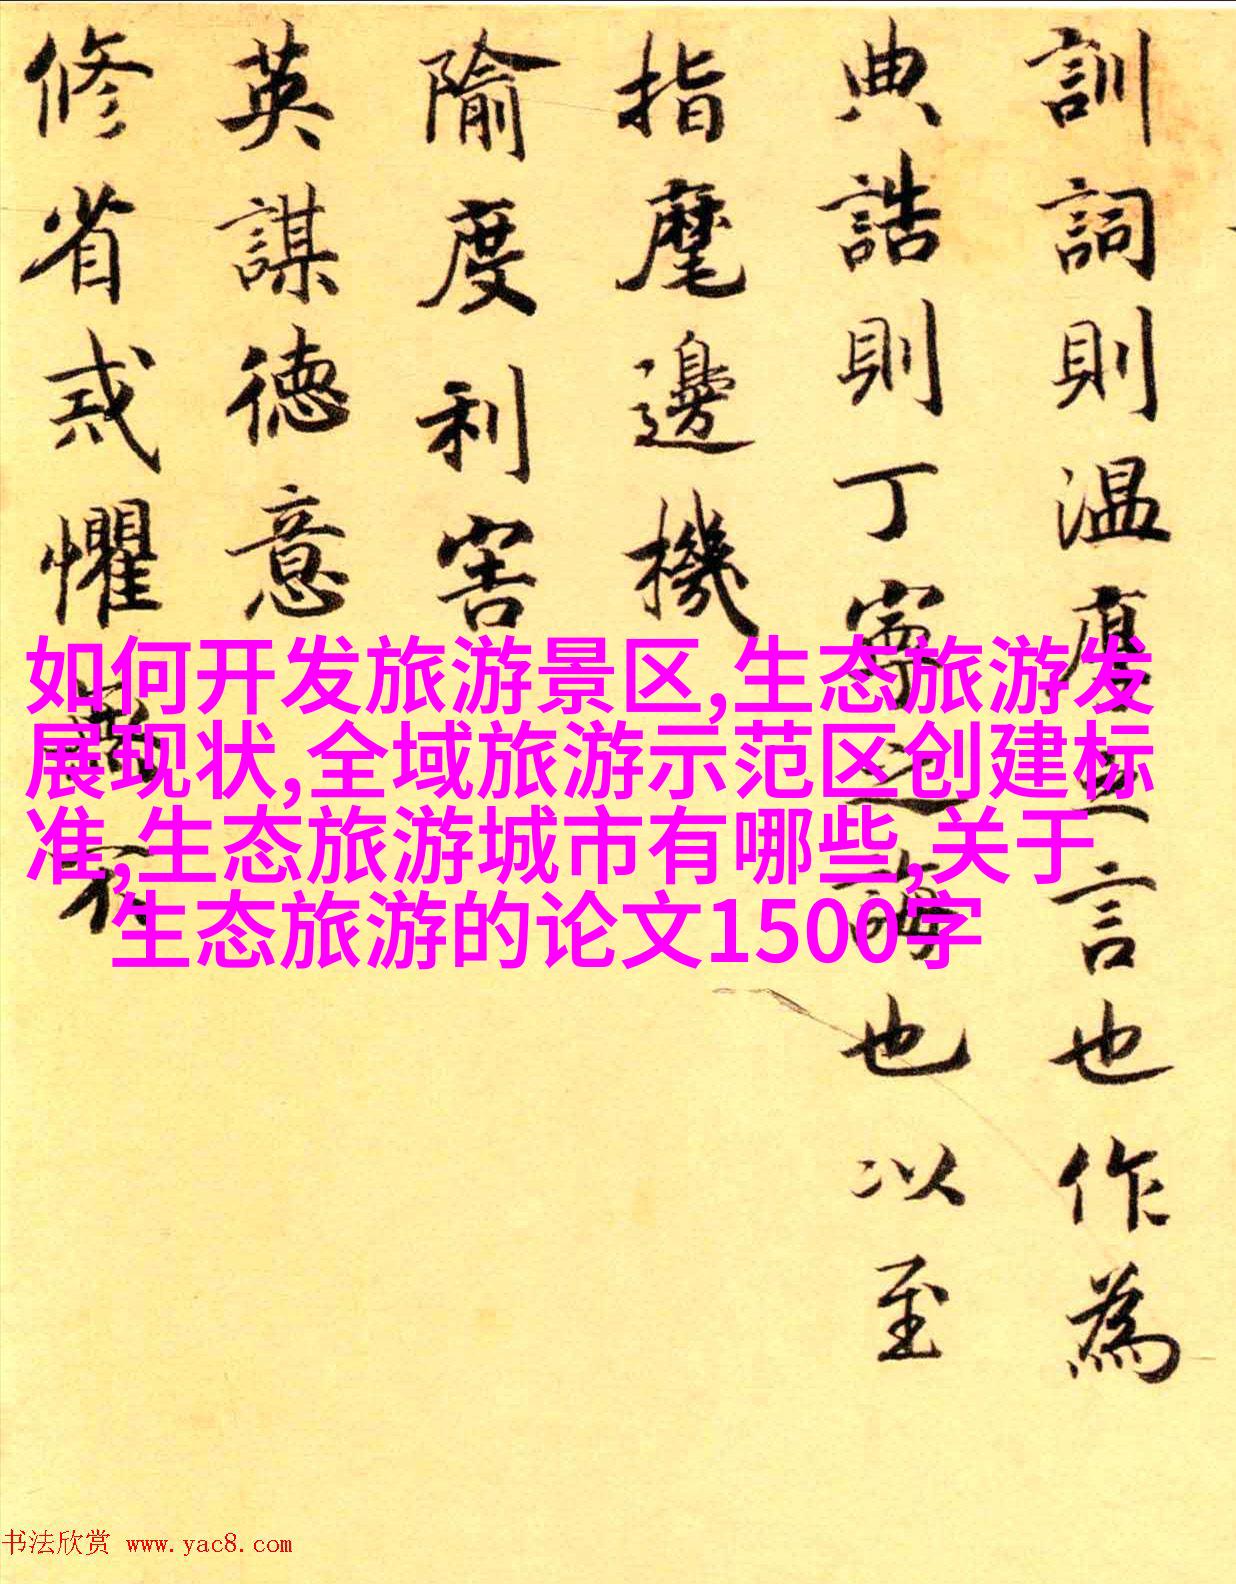 訓詞則温厚言也作為
典誥則丁寧之誨也以至
指麾邊機
隃度利害
英謀徳意
修省戒懼
如何开发旅游景区,生态旅游发
展现状,全域旅游示范区创建标
准,生态旅游城市有哪些,关于
生态旅游的论文1500字
书法欣赏 www.yac8.com